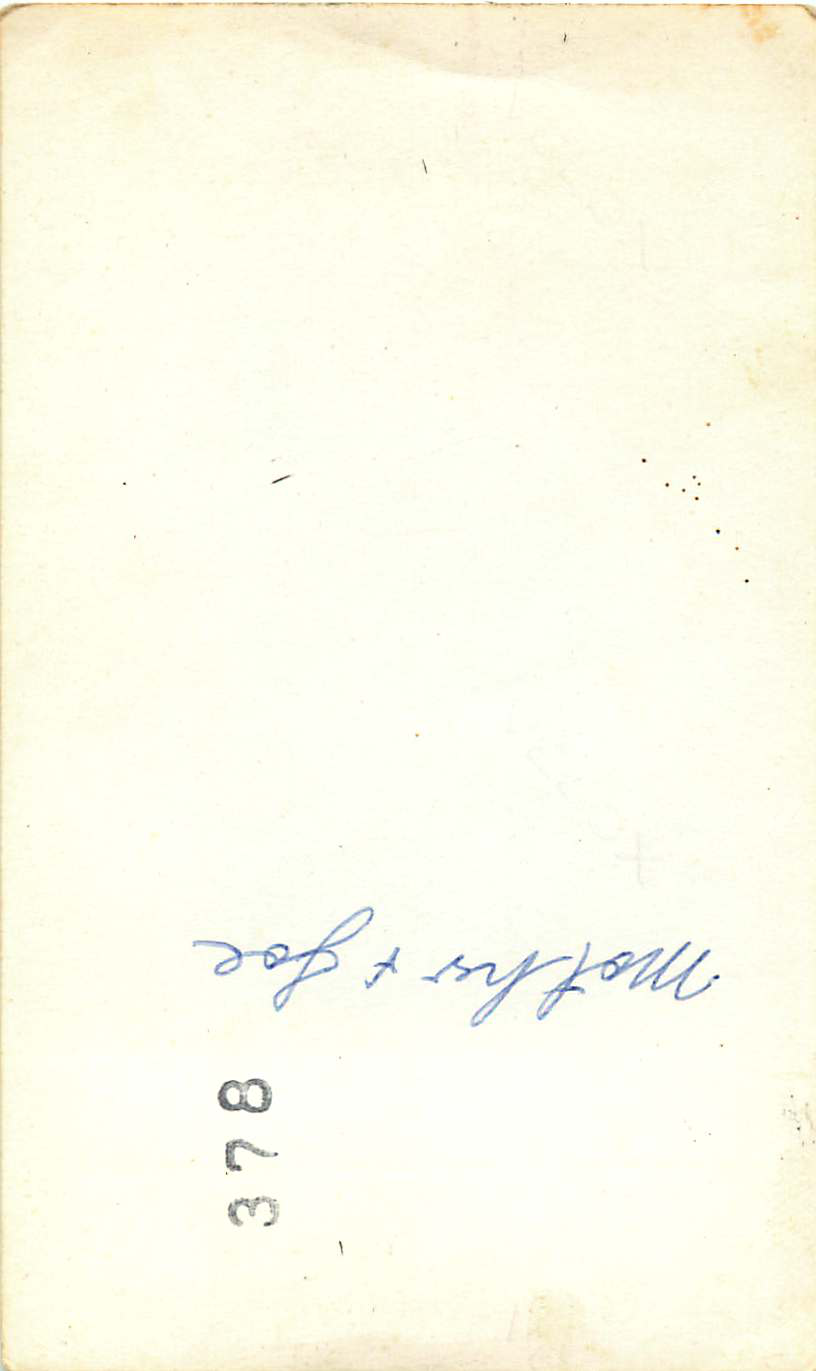 Mother + Joe
378